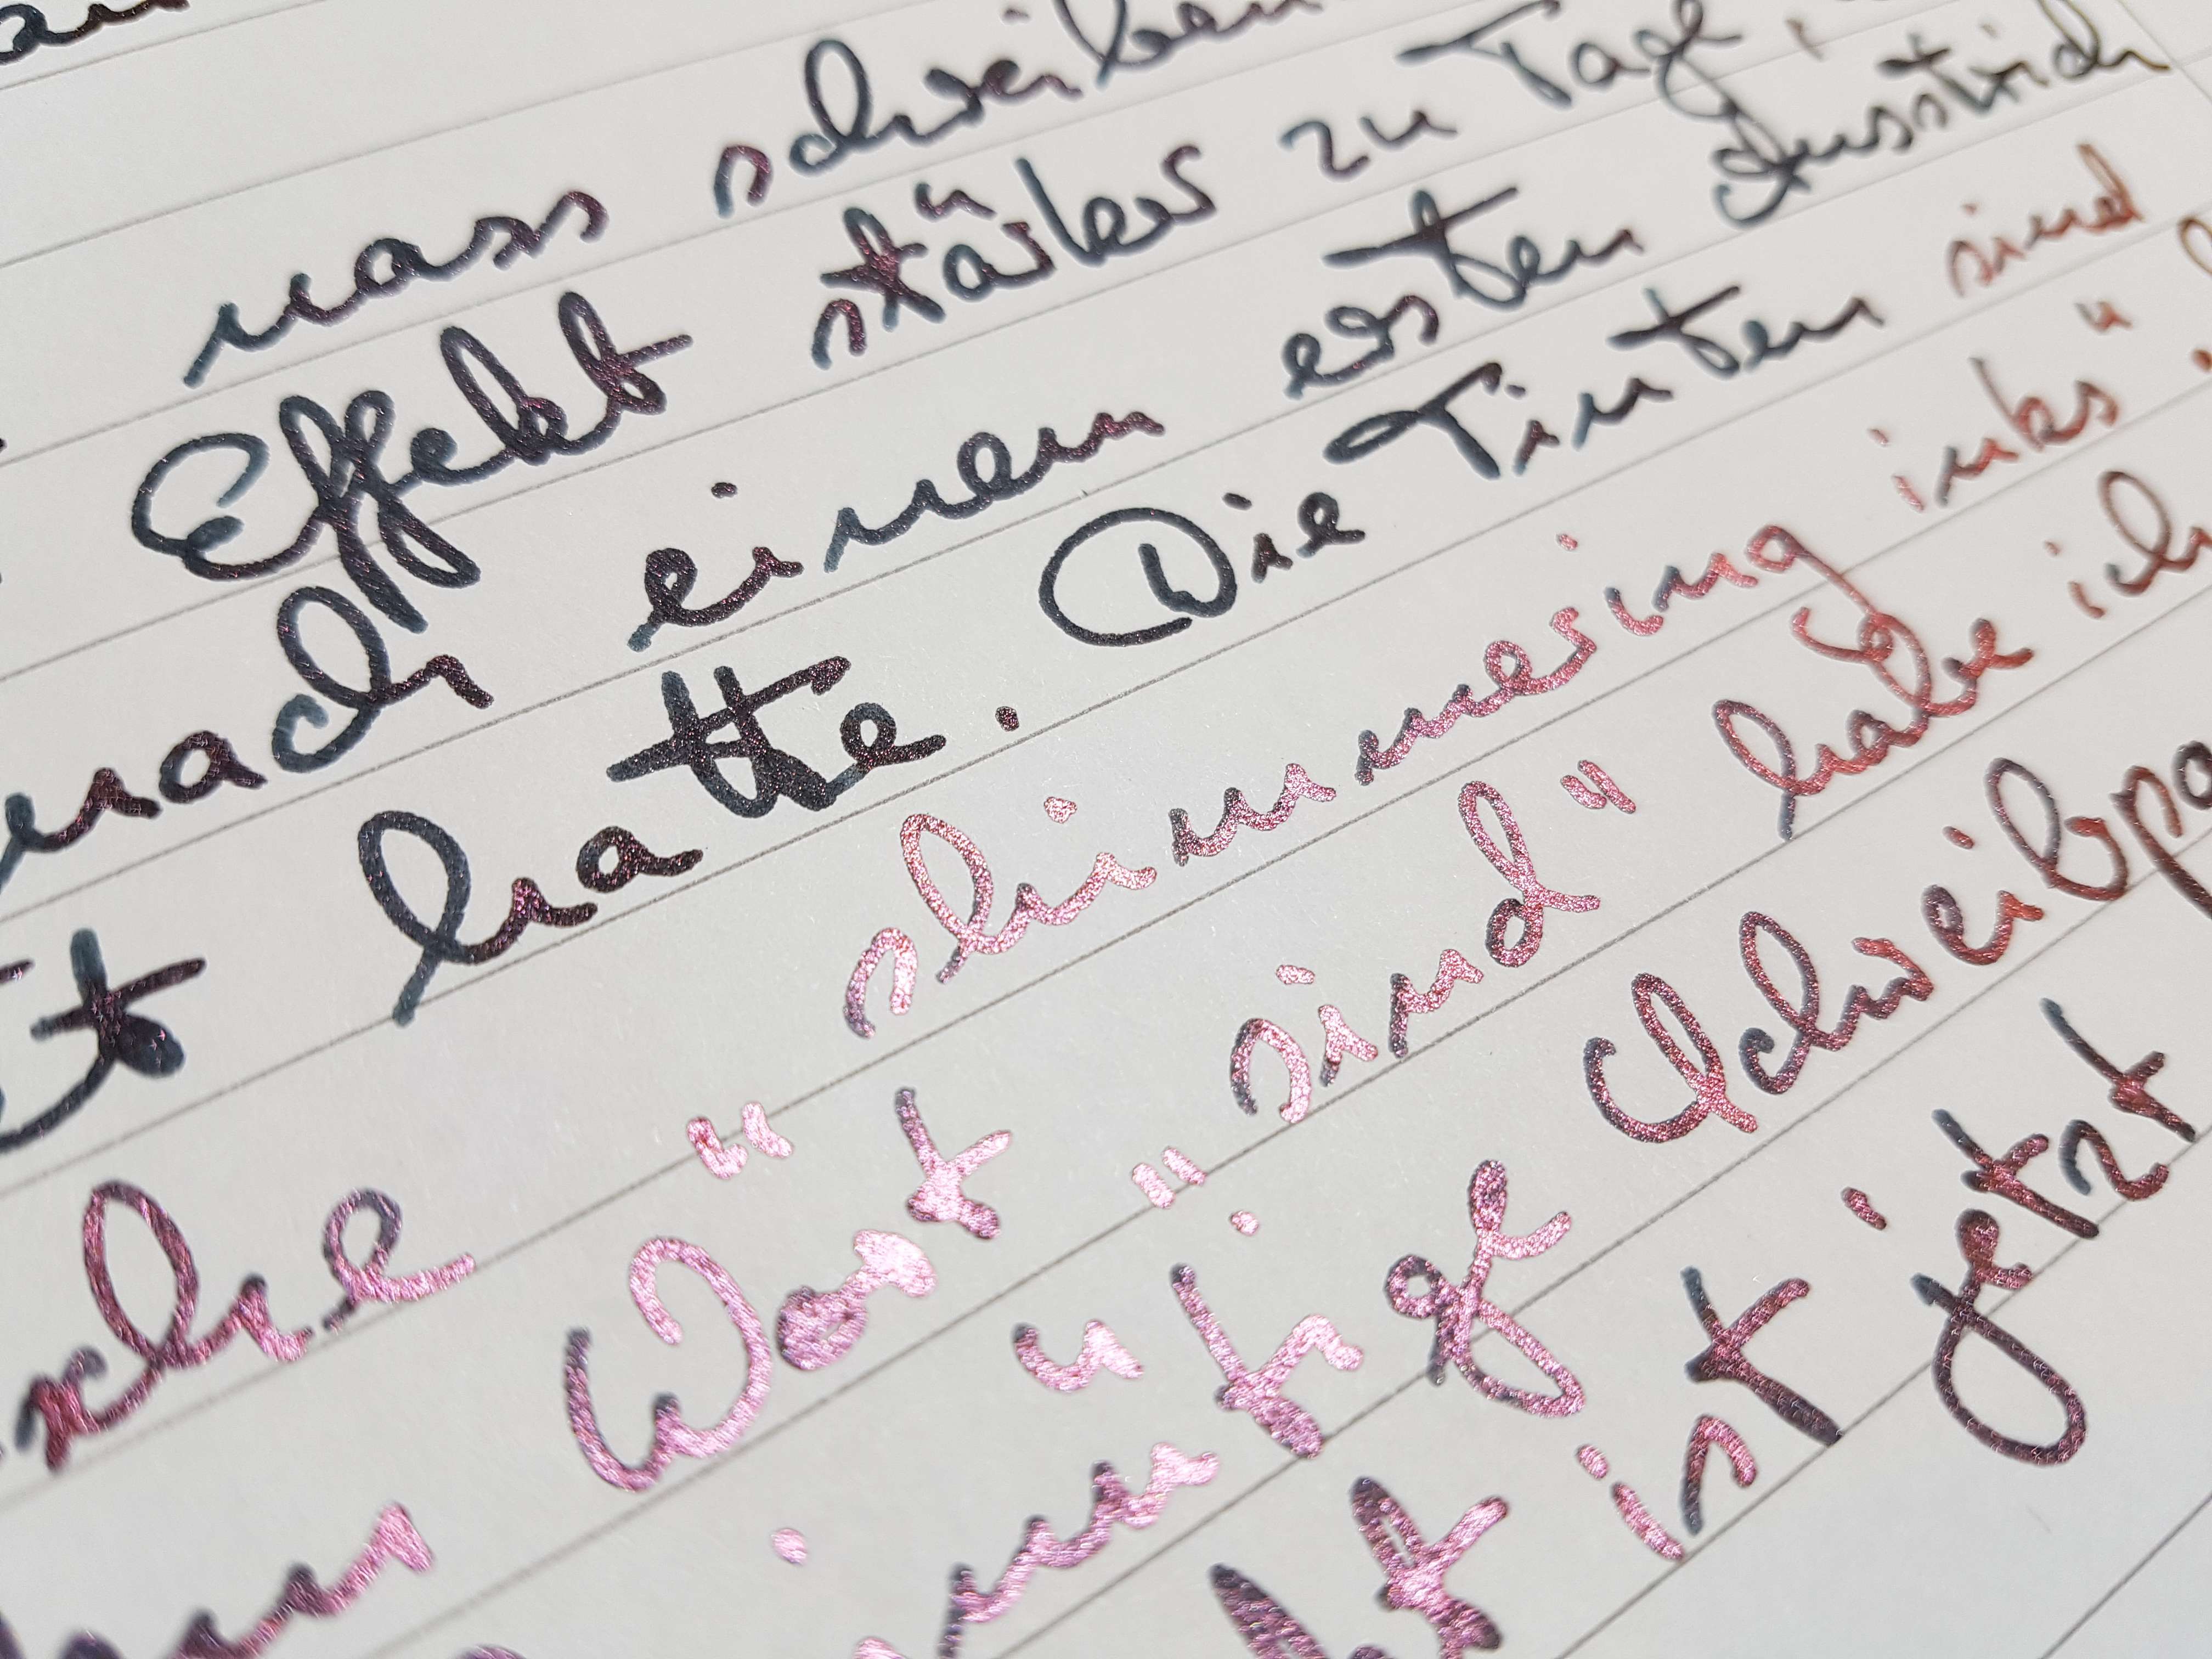 nass schreiben
Effekt stärker zu Tage,
nach einem ersten Ausstrich
hatte. Die Tinten sind
"shimmering inks"
Wort "sind" habe ich
Schreibpa
ist jetzt